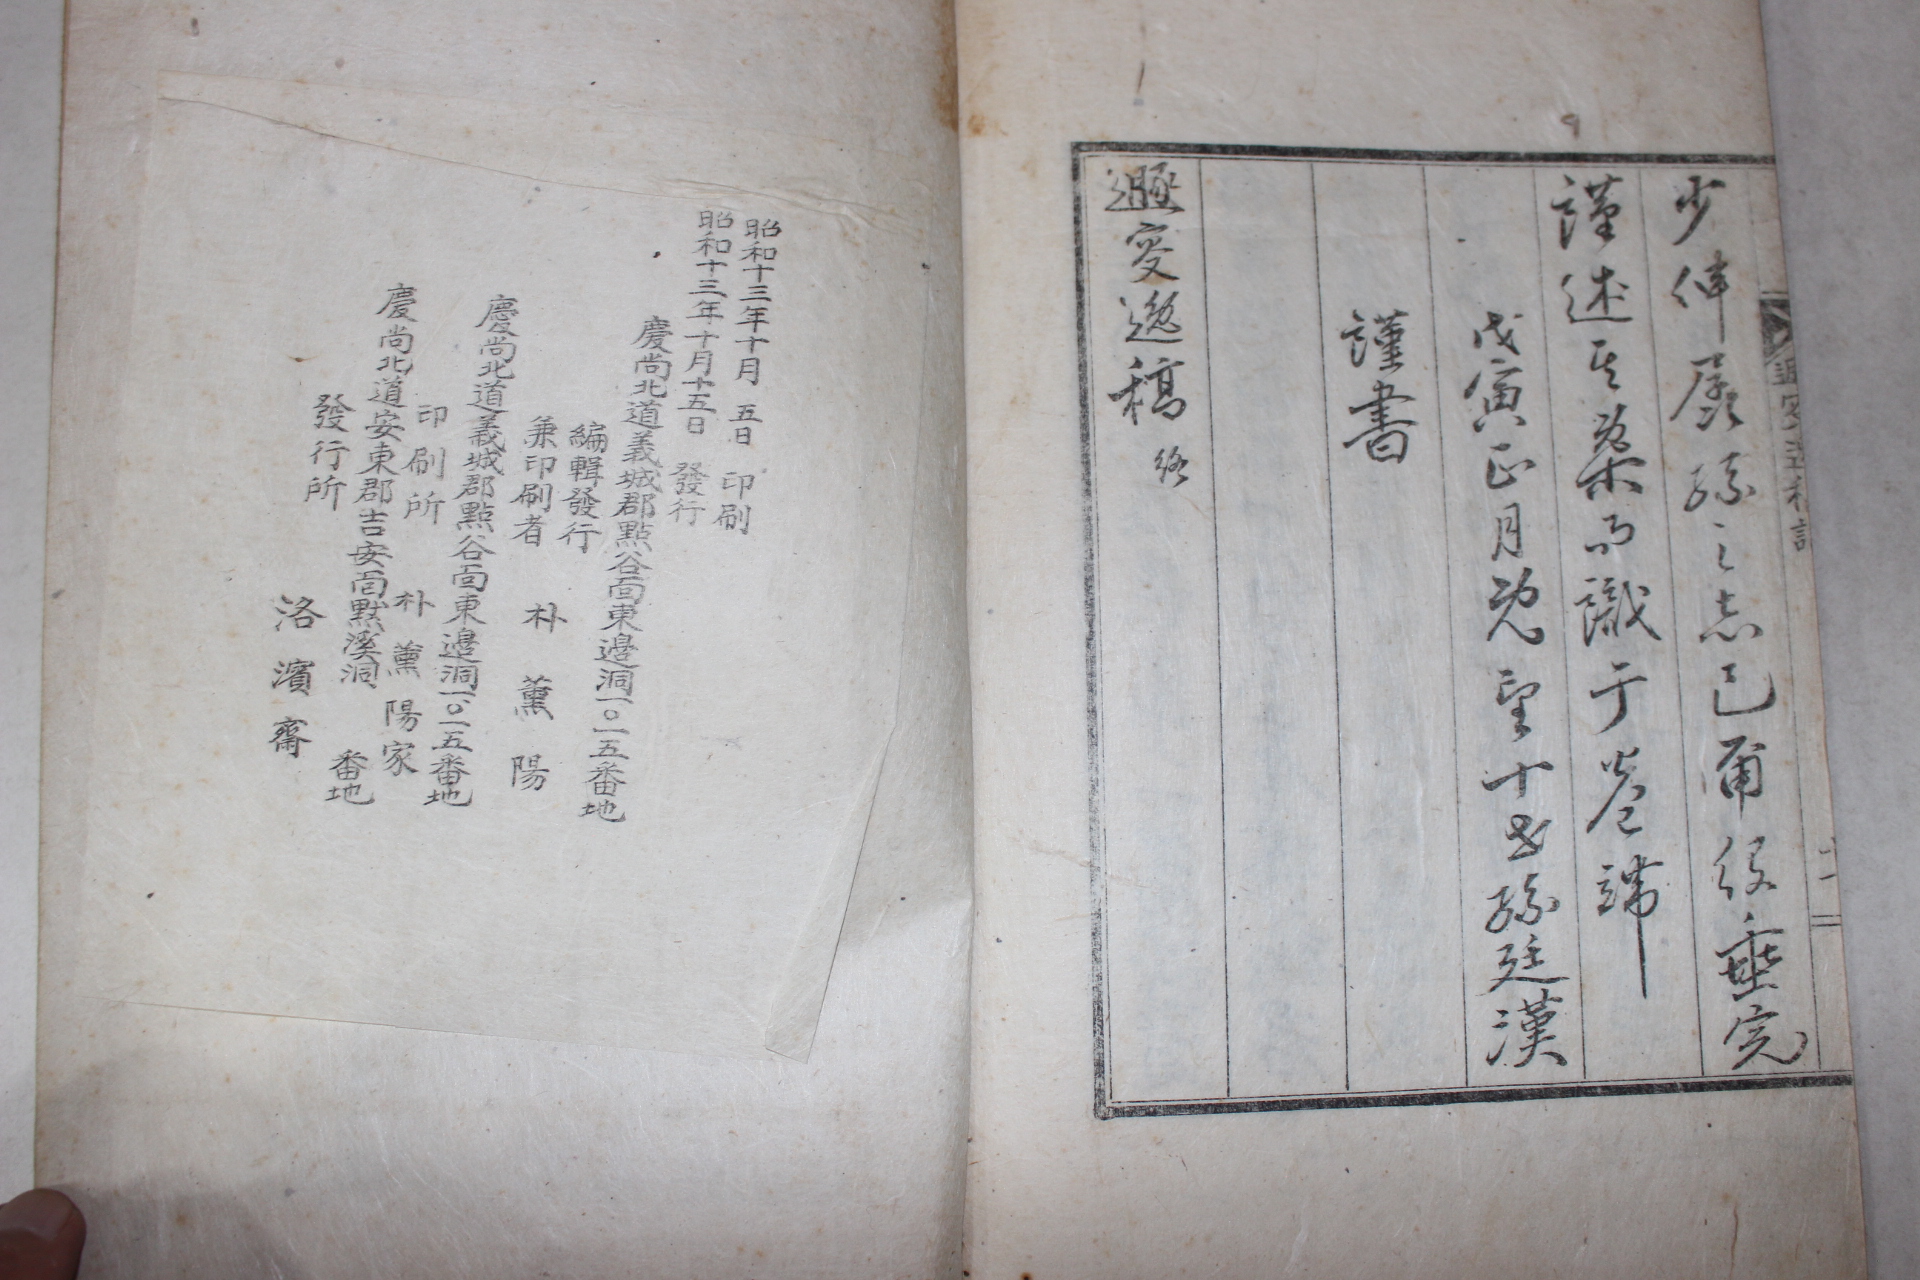 少伸孱孫之志已爾役垂完
謹述其槩而識于卷端
戊寅正月旣望十世孫廷漢
謹書
遯安逸稿 終
昭和十三年十月 五日 印刷
昭和十三年十月十五日 發行
慶尚北道義城郡點谷面東邊洞一〇一五番地
編輯發行
兼印刷者 朴薰陽
慶尚北道義城郡點谷面東邊洞一〇一五番地
印刷所 朴薰陽家
慶尚北道安東郡吉安面默溪洞 番地
發行所 洛濱齋